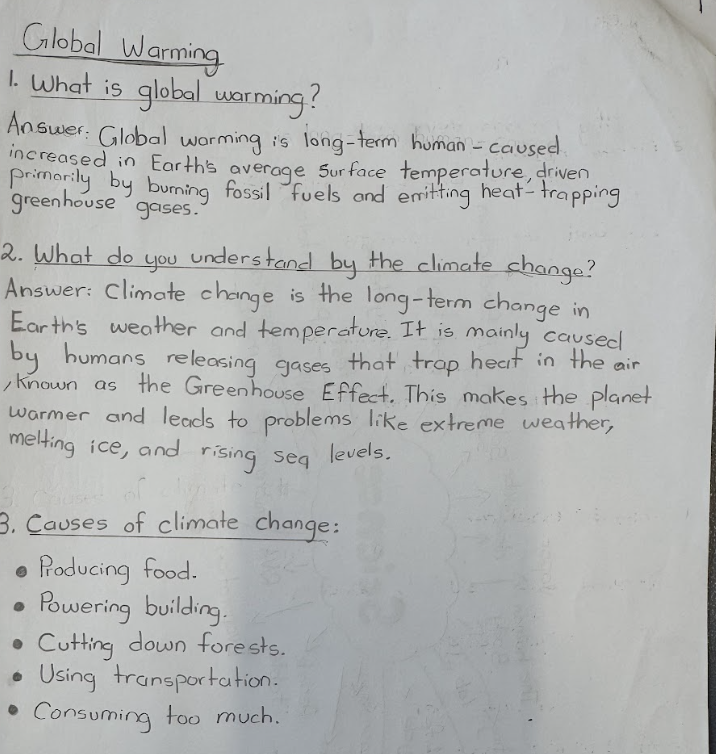 Global Warming
1. What is global warming?
Answer: Global warming is long-term human-caused
increased in Earth's average surface temperature, driven
primarily by burning fossil fuels and emitting heat-trapping
greenhouse gases.
2. What do you understand by the climate change?
Answer: Climate change is the long-term change in
Earth's weather and temperature. It is mainly caused
by humans releasing gases that trap heat in the air
, known as the Greenhouse Effect. This makes the planet
warmer and leads to problems like extreme weather,
melting ice, and rising sea levels.
3. Causes of climate change:
• Producing food.
• Powering building.
• Cutting down forests.
• Using transportation.
• Consuming too much.